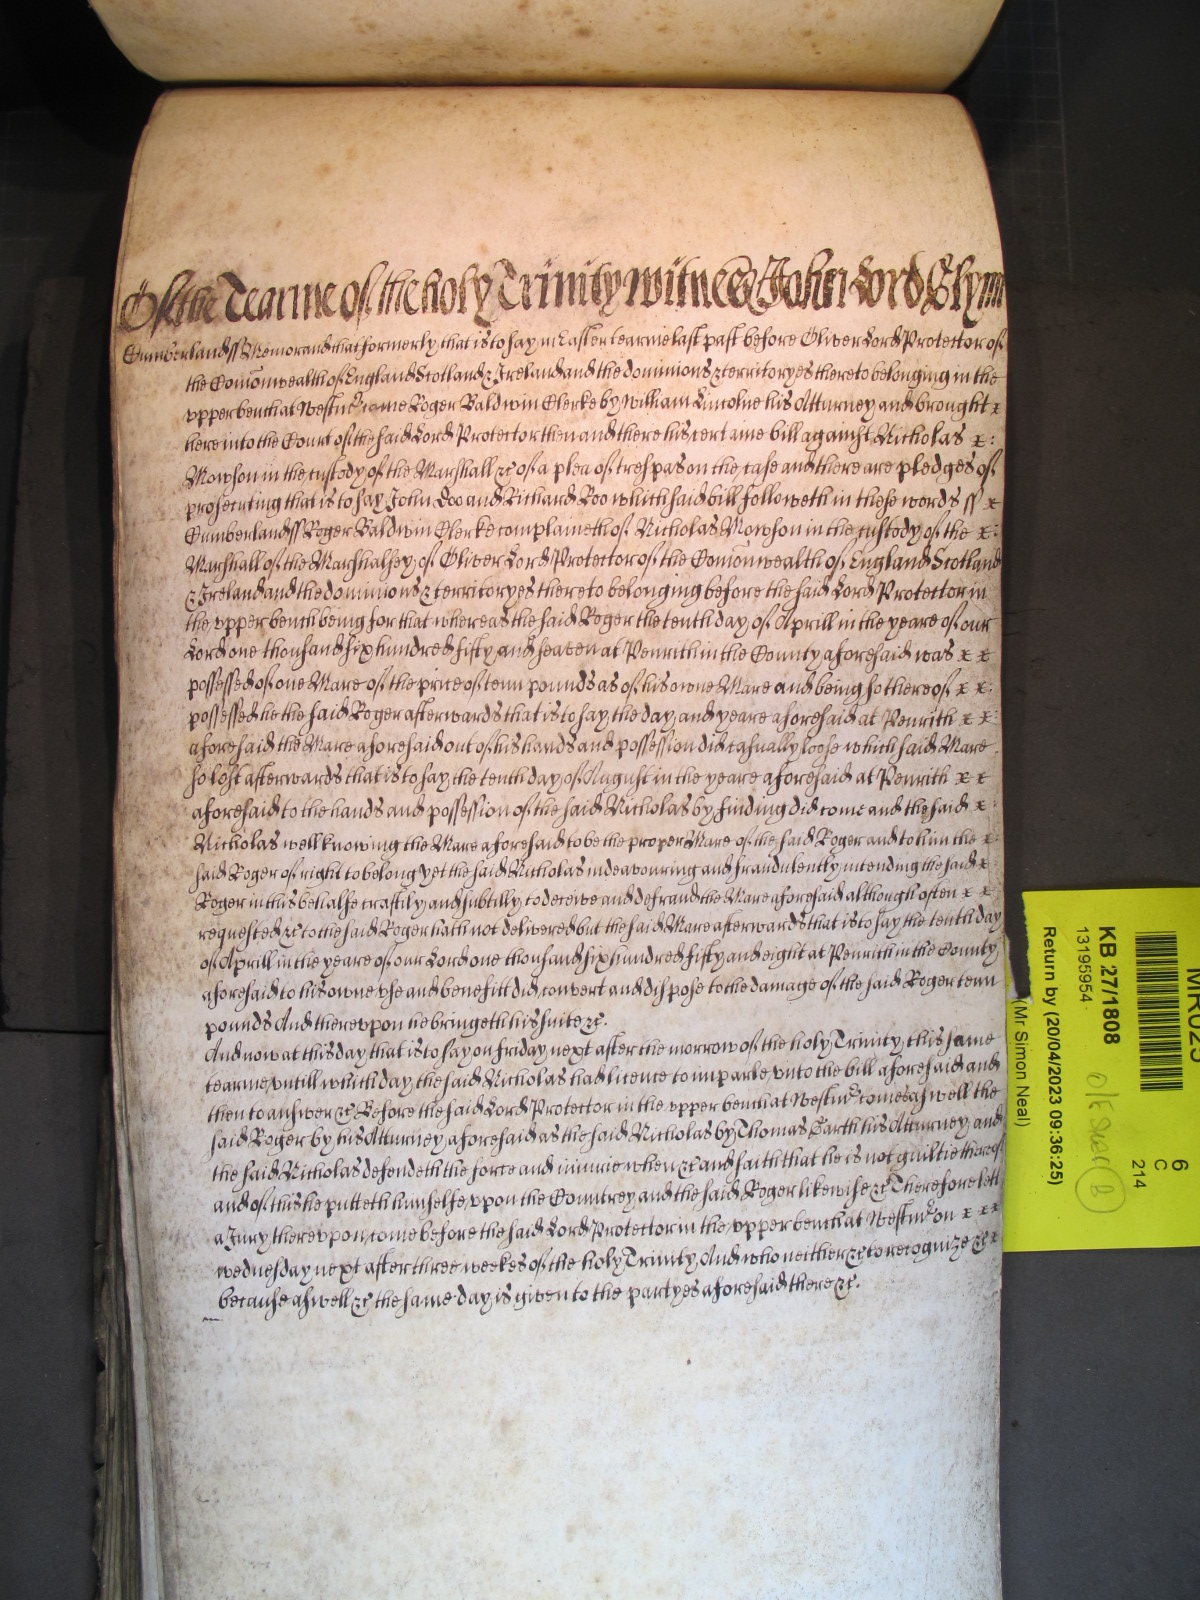 Of the Tearme of the holy Trinity witnes John Lord Glynn
Cumberland ss Memorand that formerly that is to say in Easter tearme last past before Oliver Lord Protector of
the Com̄onwealth of England Scotland & Ireland and the dominions & territoryes thereto belonging in the
vpper bench at Westmr came Roger Baldwin Clerke by William Lincolne his Atturney and brought x
here into the Court of the said Lord Protector then and there his certaine bill against Nicholas x :
Mowson in the custody of the Marshall &c of a plea of trespas on the case and there are pledges of
prosecuting that is to say John Doo and Richard Roo which said bill followeth in these words ss x
Cumberland ss Roger Baldwin Clerke complaineth of Nicholas Mowson in the custody of the x :
Marshall of the Marshalsey of Oliver Lord Protector of the Com̄onwealth of England Scotland
& Ireland and the dominions & territoryes thereto belonging before the said Lord Protector in
the vpper bench being for that whereas the said Roger the tenth day of Aprill in the yeare of our
Lord one thousand six hundred fifty and seaven at Penrith in the County aforesaid was x x
possessed of one Mare of the price of tenn pounds as of his owne Mare and being so thereof x x :
possessed he the said Roger afterwards that is to say the day and yeare aforesaid at Penrith x x :
aforesaid the Mare aforesaid out of his hands and possession did casually loose which said Mare
so lost afterwards that is to say the tenth day of August in the yeare aforesaid at Penrith x x
aforesaid to the hands and possession of the said Nicholas by finding did come and the said x :
Nicholas well knowing the Mare aforesaid to be the proper Mare of the said Roger and to him the x :
said Roger of right to belong yet the said Nicholas indeavouring and fraudulently intending the said x
Roger in this behalfe craftily and subtilly to deceive and defraud the Mare aforesaid although often x x
requested &c to the said Roger hath not delivered but the said Mare afterwards that is to say the tenth day
of Aprill in the yeare of our Lord one thousand six hundred fifty and eight at Penrith in the County
aforesaid to his owne vse and benefitt did convert and dispose to the damage of the said Roger tenn
pounds And therevpon he bringeth his suite &c.
And now at this day that is to say on friday next after the morrow of the holy Trinity this same
tearme vntill which day the said Nicholas had licence to imparle vnto the bill aforesaid and
then to answer &c Before the said Lord Protector in the vpper bench at Westmr comes aswell the
said Roger by his Atturney aforesaid as the said Nicholas by Thomas Garth his Atturney and
the said Nicholas defendeth the force and iniurie when &c and saith that he is not guiltie thereof
and of this he putteth himselfe vpon the Countrey and the said Roger likewise &c Therefore lett
a Jury therevpon come before the said Lord Protector in the vpper bench at Westmr on x x x
wednesday next after three weekes of the holy Trinity And who neither &c to recognize &c x
because aswell &c the same day is given to the partyes aforesaid there &c.
MR025
6
C
214
KB 27/1808
13195954
Return by (20/04/2023 09:36:25)
(Mr Simon Neal)